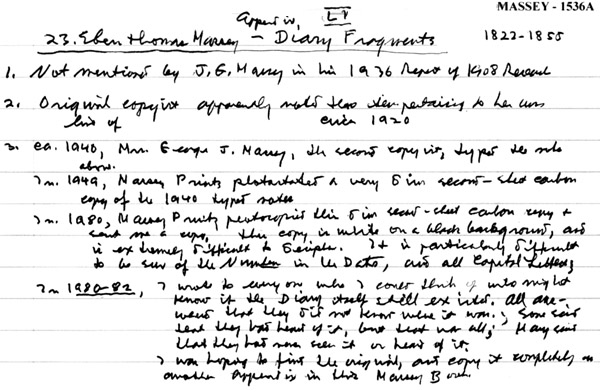 MASSEY - 1536A
Appendix, LV
23. Eben Thomas Massey - Diary Fragments 1822-1855
1. Not mentioned by J. G. Massey in his 1936 Report of 1908 Research
2. Original copyist apparently noted items pertaining to her own
line of circa 1920
3. ca. 1940, Mrs. George J. Massey, the second copyist, typed the note
above.
In 1949, Massey Prints photostated a very dim second-sheet carbon
copy of the 1940 typed notes
In 1980, Massey Prints photocopied this dim second-sheet carbon copy &
sent me a copy. The copy is white on a black background, and
is extremely difficult to decipher. It is particularly difficult
to be sure of the Number in the Dates, and all Capital Letters;
In 1980-82, I wrote to everyone who I could think of who might
know if the Diary itself still existed. All ans-
wered that they did not know where it was; Some said
that they had heard of it, but that was all; Many said
that they had never seen it or heard of it.
I was hoping to find the original, and copy it completely as
another appendix in this Massey Book.